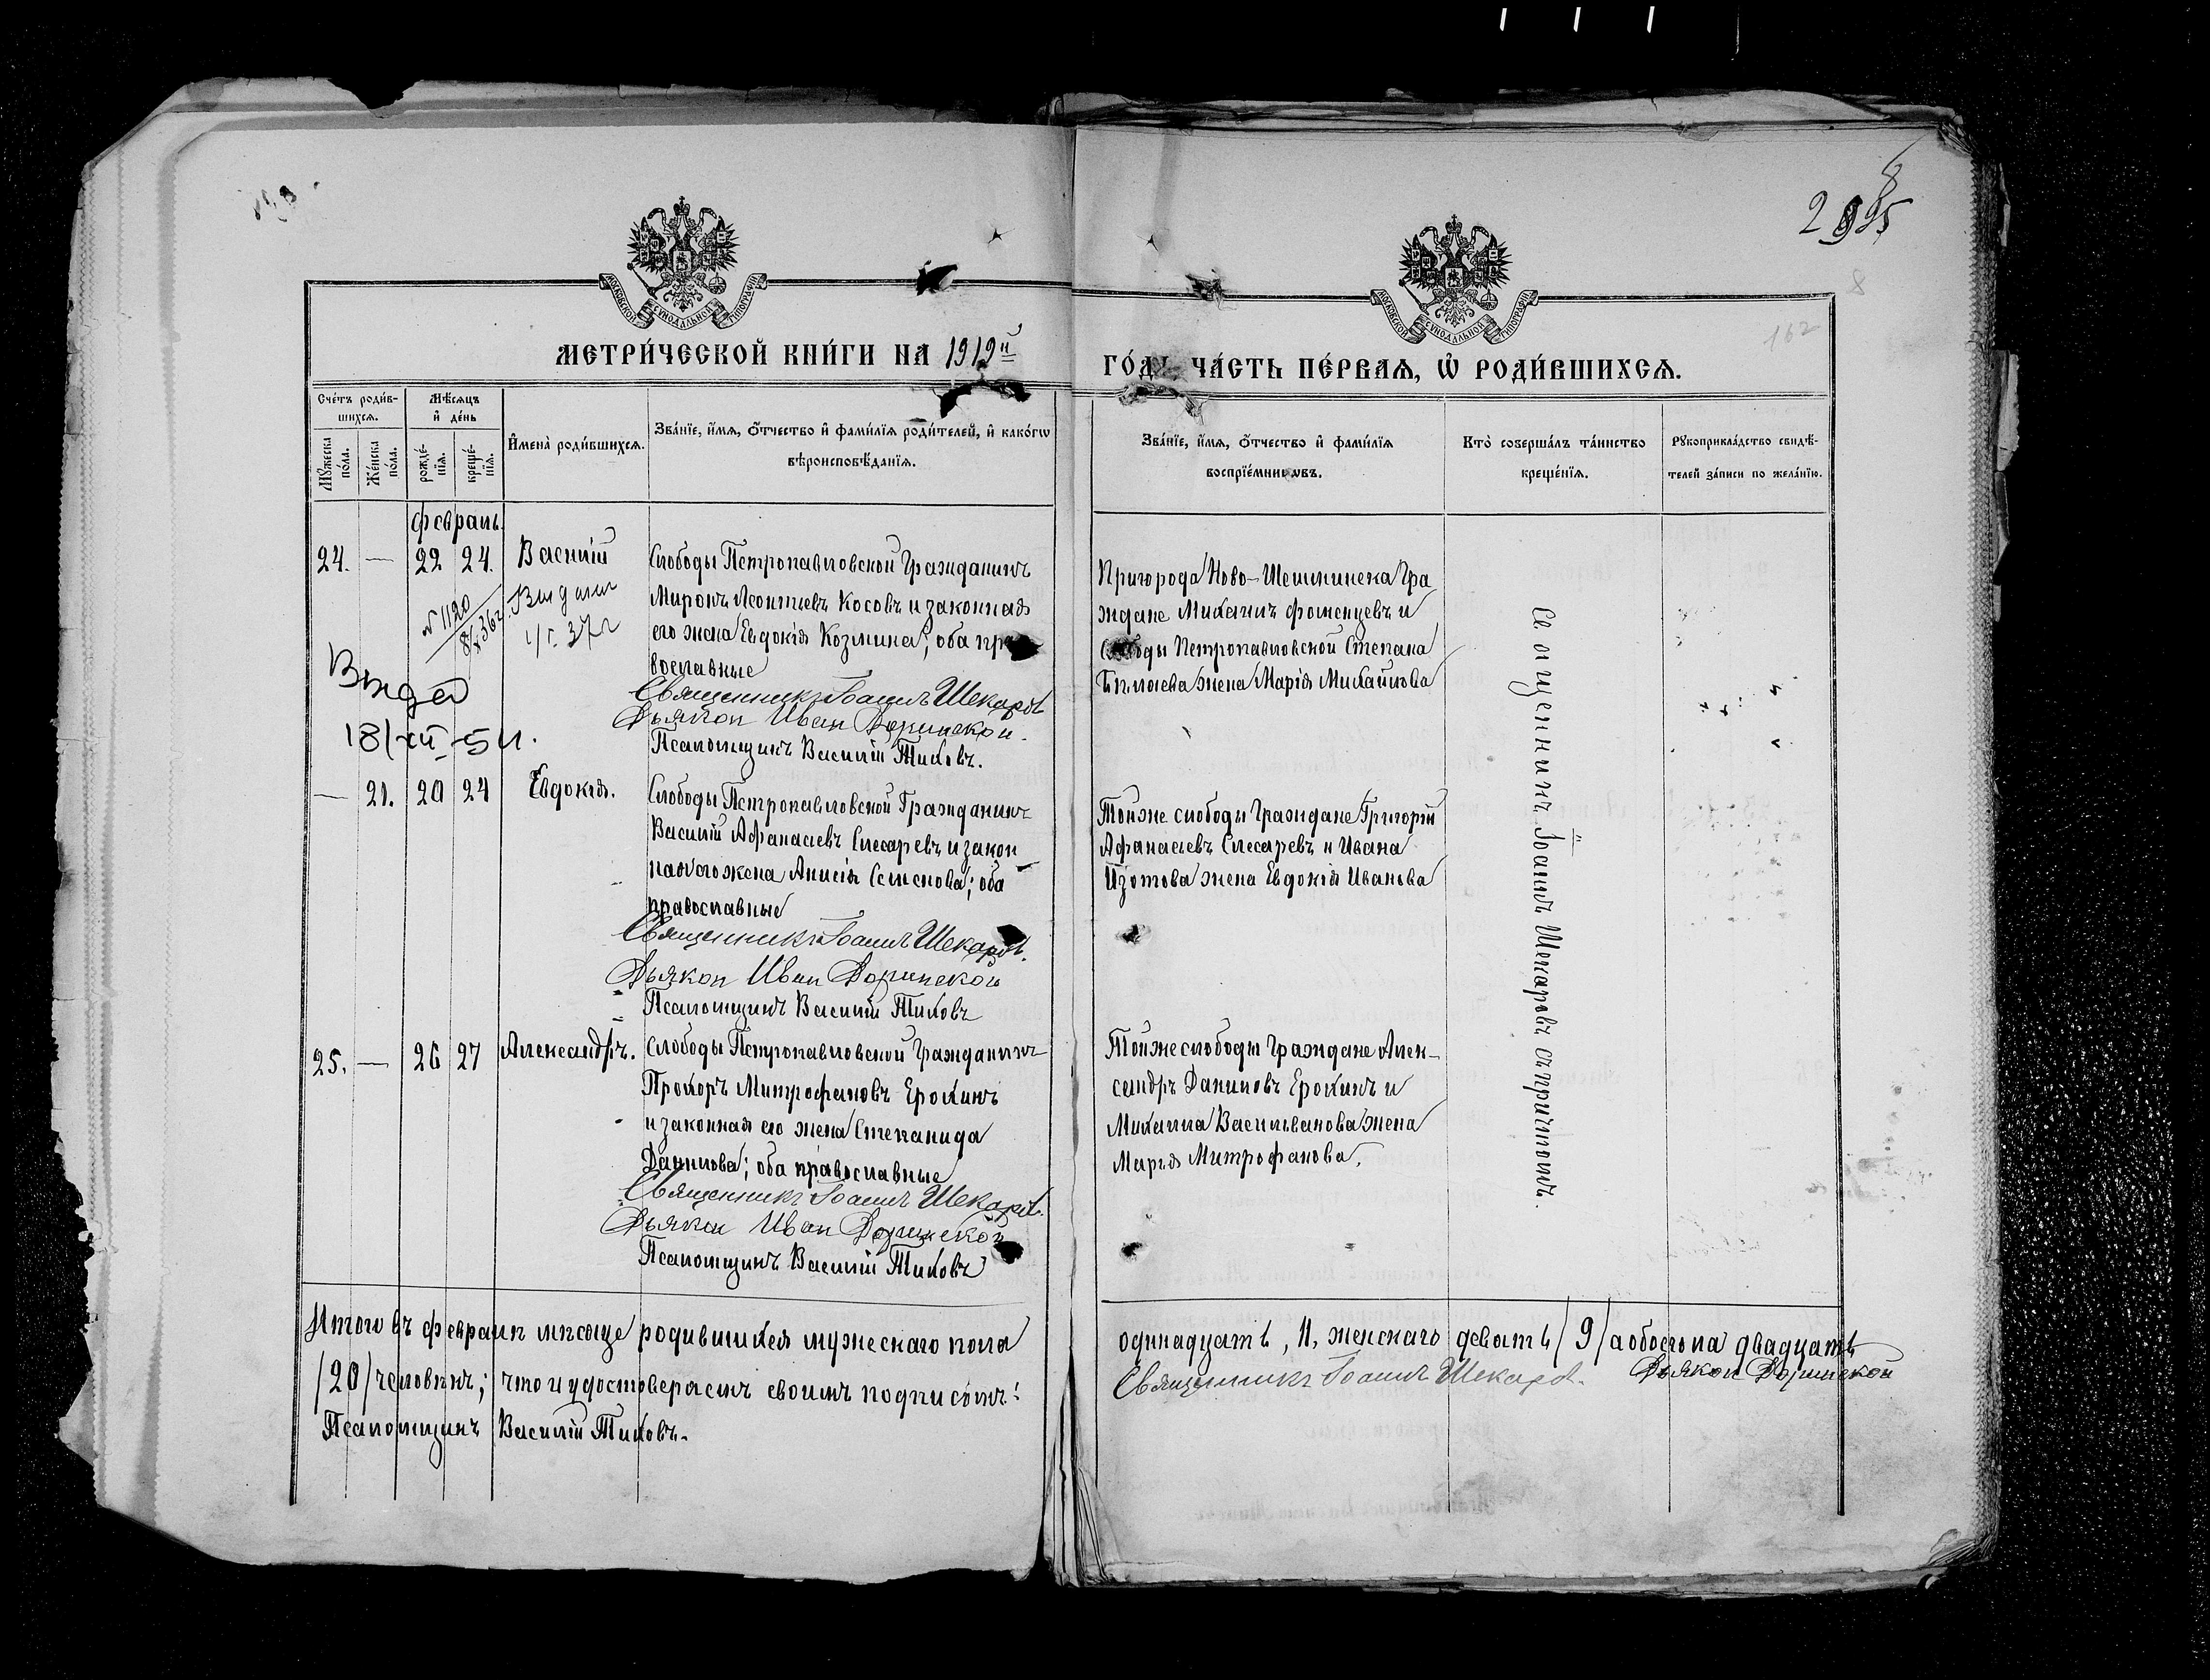 2925
8
162
МОСКОВСКОЙ СѴНОДАЛЬНОЙ ТИПОГРАФІИ
МОСКОВСКОЙ СѴНОДАЛЬНОЙ ТИПОГРАФІИ
МЕТРИ́ЧЕСКОЙ КНИ́ГИ НА 1919й
ГО́ДЪ ЧА́СТЬ ПЕ́РВАѦ, Ѡ҆ РОДИ́ВШИХСѦ.
Сче́тъ роди́в-
шихсѧ.
Мꙋ́жеска по́ла.
Же́нска по́ла.
Мѣ́сѧцъ
и҆ де́нь
рожде́-нїѧ.
креще́-нїѧ.
И҆мена̀ роди́вшихсѧ.
Зва́нїе, и҆́мѧ, ѻ҆́тчество и҆ фами́лїѧ роди́телей, и҆ како́гѡ
вѣроисповѣ́данїѧ.
Зва́нїе, и҆́мѧ, ѻ҆́тчество и҆ фами́лїѧ
воспрїе́мникѡвъ.
Кто̀ соверша́лъ та́инство
креще́нїѧ.
Рꙋкоприкла́дство свидѣ́-
телей за́писи по жела́нїю.
Февраль
24. — 22 24. Василій
Слободы Петропавловской Гражданинъ
Миронъ Леонтьевъ Косовъ и законная
его жена Евдокія Козмина; оба пра
вославные
Священникъ Іоаннъ Шекаровъ
Дьякон Иван
Псаломщикъ Василій Тиховъ.
№ 1120
Выдан
37г
18/XII-51.
Пригорода Ново-Шешминска Гра
ждане Михаилъ Фоменцевъ и
Слободы Петропавловской Степана
жена Марія Михайлова
— 21. 20 24 Евдокія.
Слободы Петропавловской Гражданинъ
Василій Афанасьевъ Слесаревъ и закон
ная его жена Анисія Семенова; оба
православные
Священникъ Іоаннъ Шекаровъ.
Дьякон Иван
Псаломщикъ Василій Тиховъ
Тойже слободы Граждане Григорій
Афанасьевъ Слесаревъ и Ивана
Изотова жена Евдокія Иванова
25. — 26 27 Александръ.
Слободы Петропавловской Гражданинъ
Прохоръ Митрофановъ Ерохинъ
и законная его жена Степанида
Данилова; оба православные
Священникъ Іоаннъ Шекаровъ.
Дьякон Иван
Псаломщикъ Василій Тиховъ
Тойже слободы Граждане Алек-
сандръ Даниловъ Ерохинъ и
Михаила Васильванова жена
Марья Митрофанова.
Священникъ Іоаннъ Шекаровъ съ причтомъ.
Итого въ февралѣ мѣсяце родившихся мужескаго пола
одинадцать, 11, женскаго девять /9/ а обоего пола двадцать
/20/ человѣкъ; что и удостоверяемъ своимъ подписомъ:
Священникъ Іоаннъ Шекаровъ. Дьякон
Псаломщикъ Василій Тиховъ.